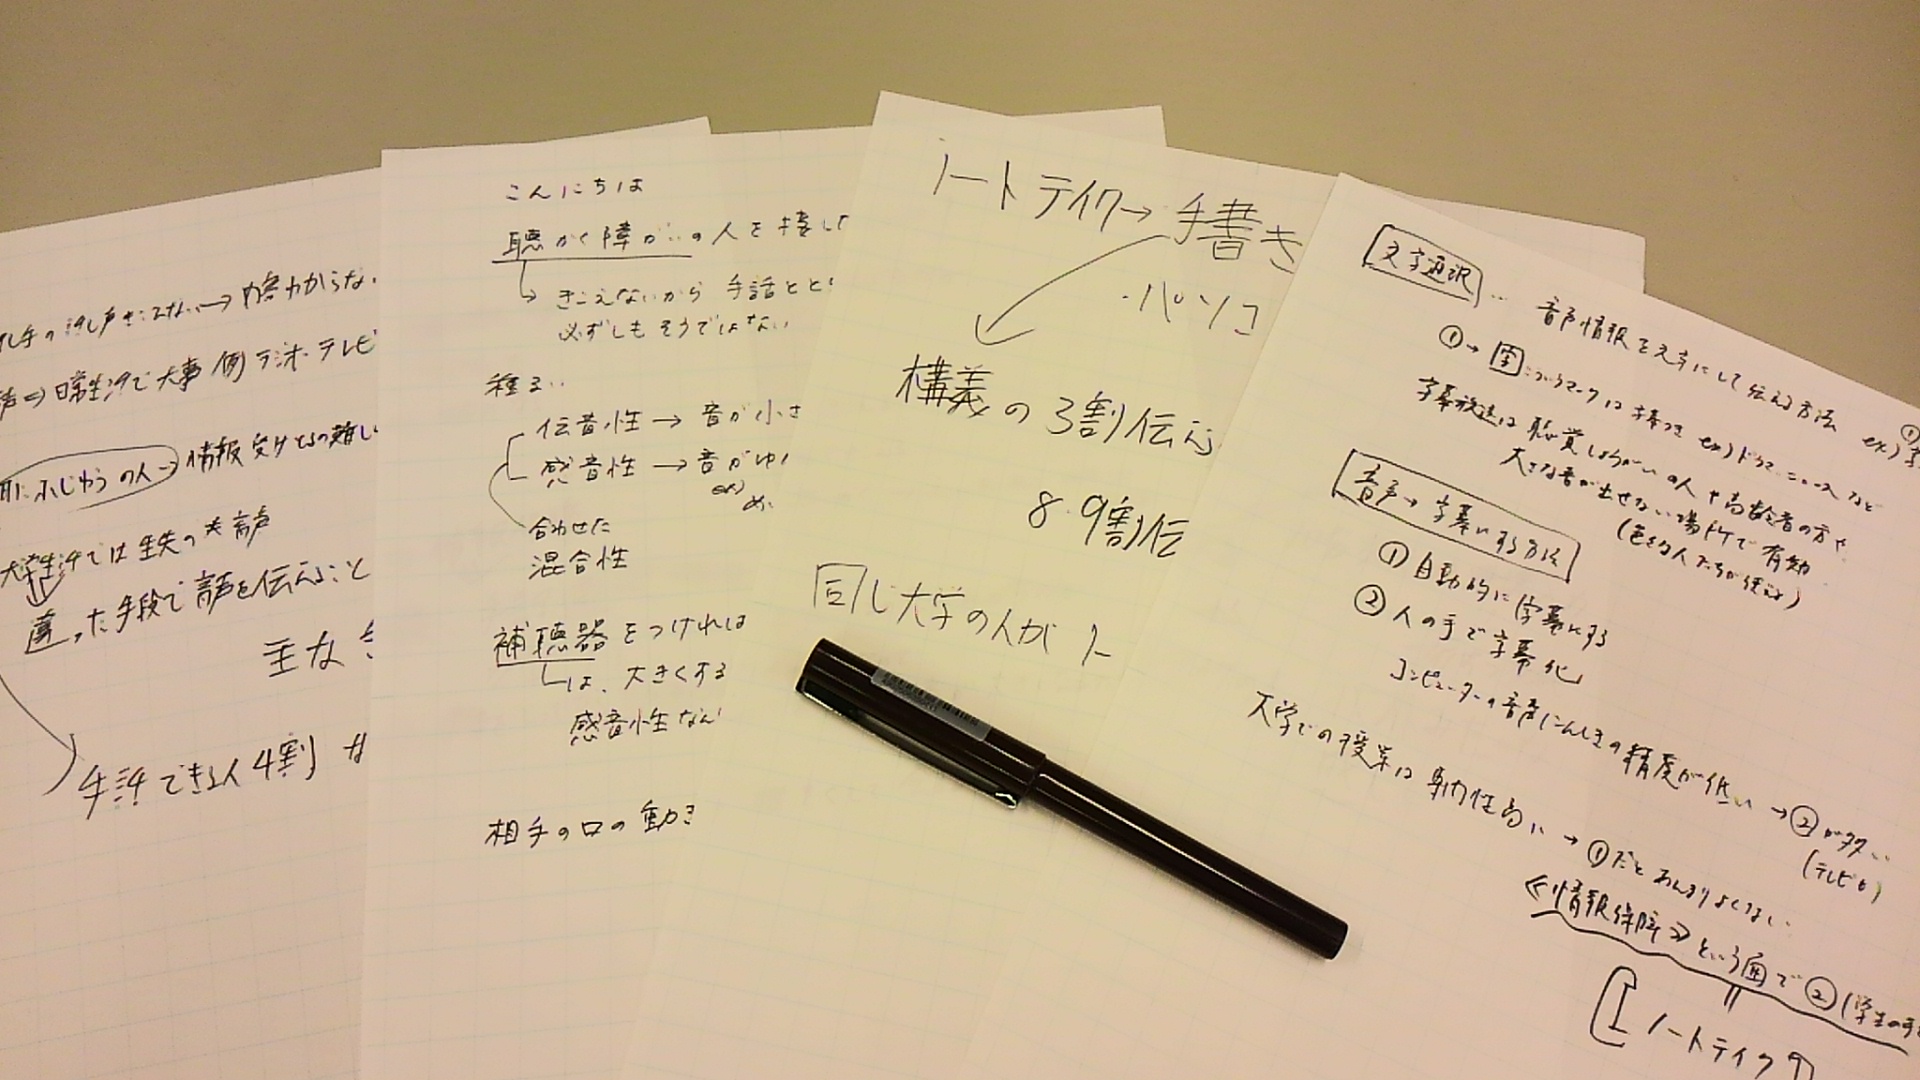 の話し声きこえない→内容わからない
⇒日常生活で大事 例 ラジオ・テレビ
耳にふじゆうの人→情報受けとるの難しい
大学生活では 先生の音声
違った手段で音声を伝えること
主な
手話できる人4割
こんにちは
聴かく障がいの人を接した
きこえないから 手話とと
必ずしもそうではない
種るい
伝音性→音が小さ
感音性→音がゆ
ex)
め
合わせた
混合性
補聴器をつければ
は、大きくする
感音性なん
相手の口の動き
ノートテイク→手書き
・パソコ
構義の3割伝わる
8.9割伝
同じ大学の人がノー
文字通訳… 音声情報を文字にして伝える方法 ex)
①→字こういうマークは字幕つき ex)ドラマ、ニュースなど
字幕放送は聴覚しょうがいの人や高齢者の方や
大きな音が出せない場所で有効
(色々な人たちが使える)
音声→字幕にする方法
①自動的に字幕にする
②人の手で字幕化
コンピューターの音声にんしきの精度が低い→②が多い
(テレビも)
大学での授業は専門性高い→①だとあんまりよくない
≪情報保障≫という面で②(学生の手
ノートテイク